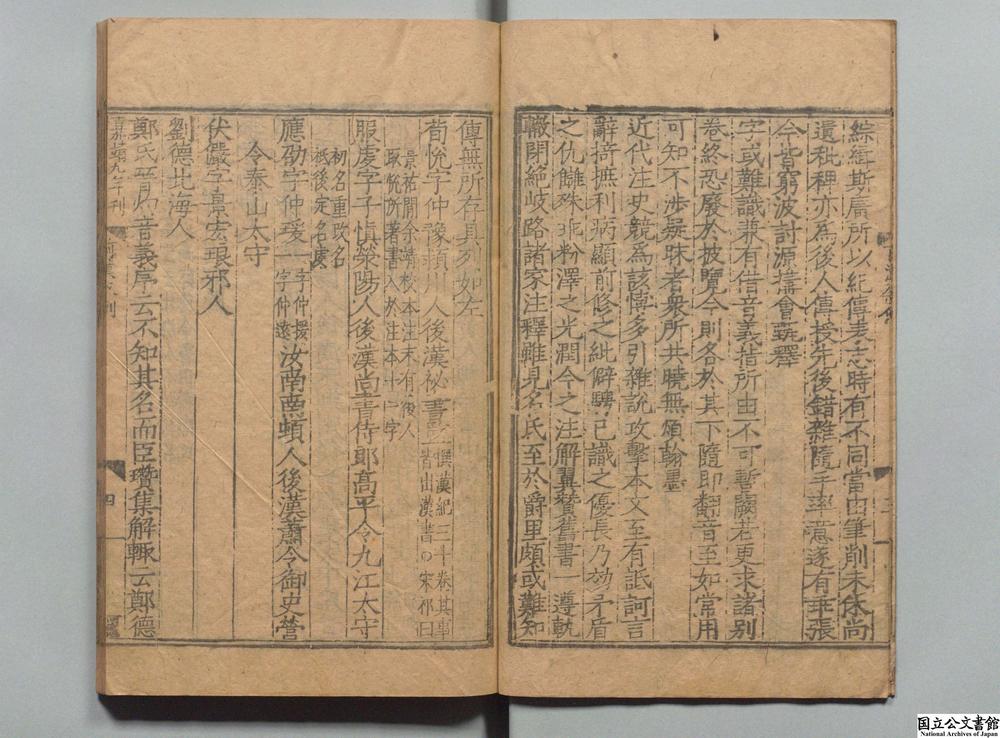 綜緝斯廣所以紀傳表志時有不同當由筆削未休尚
遺秕稗亦為後人傳授先後錯雜隨手率意遂有乖張
今皆窮波討源搆會甄釋
字或難識兼有借音義指所由不可暫闕若更求諸別
卷終恐廢於披覽今則各於其下隨即翻音至如常用
可知不涉疑昧者衆所共曉無煩翰墨
近代注史競為該博多引雜說攻擊本文至有詆訶言
辭掎摭利病顯前修之紕僻騁己識之優長乃効矛盾
之仇讎殊乖粉澤之光潤今之注解翼贊舊書一遵軌
轍閉絕岐路諸家注釋雖見名氏至於爵里頗或難知
傳無所存具列如左
荀悅字仲豫潁川人後漢祕書監撰漢紀三十卷其事
皆出漢書○宋祁曰
景祐間余靖校本注末有後人
取悅所著書入於注本十一字
服虔字子慎滎陽人後漢尚書侍郎高平令九江太守
初名重改名
祇後定名虔
應劭字仲瑗一字仲援
一字仲遠
汝南南頓人後漢蕭令御史營
令泰山太守
伏儼字景宏琅邪人
劉德北海人
鄭氏晉灼音義序云不知其名而臣瓚集解輒云鄭德
四
国立公文書館
National Archives of Japan